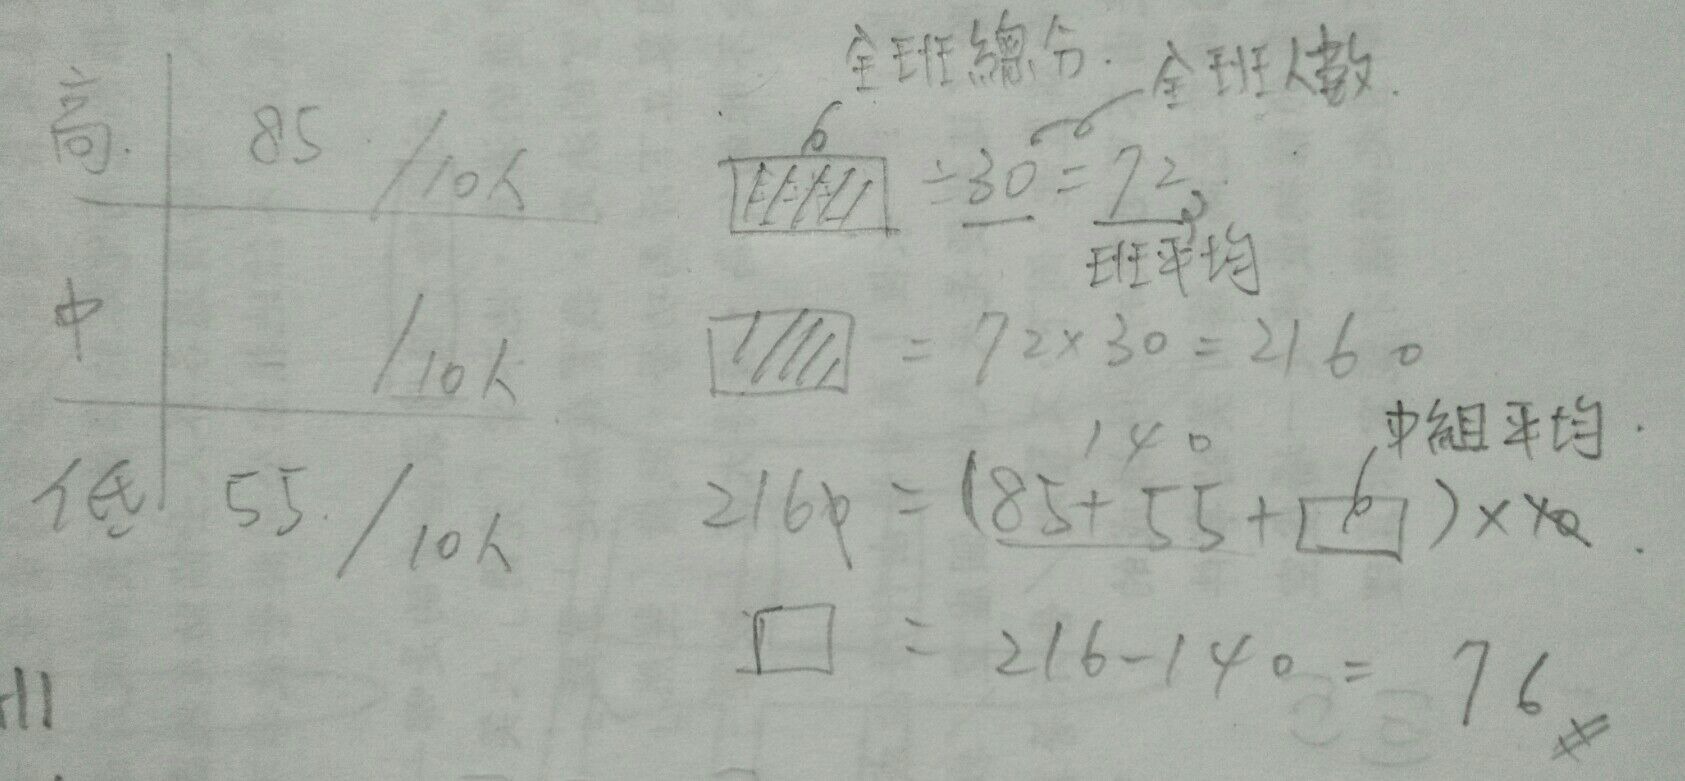 全班總分. 全班人數.
高. 85. /10人
÷30 = 72
班平均
中 /10人
= 72×30 = 2160
中組平均.
140
低 55. /10人
2160 = (85+55+□)×10.
□ = 216-140 = 76